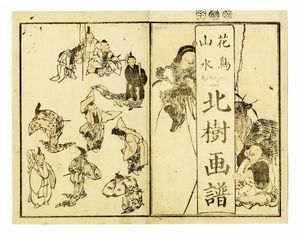 花鳥
山水
北樹画譜